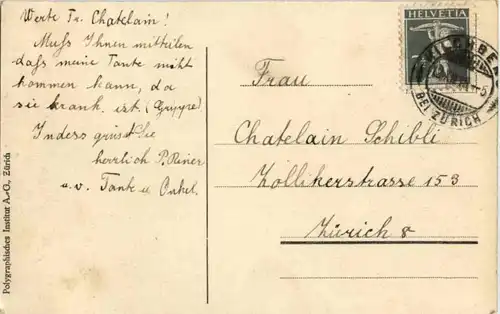 Werte Fr. Chatelain!
Muss Ihnen mitteilen
dass meine Tante nicht
kommen kann, da
sie krank ist (Gryppe)
Indess grüsst Sie
herrlich P.
a.v. Tante u Onkel.
Polygraphisches Institut A.-G., Zürich
HELVETIA
BEI ZÜRICH
Frau
Chatelain Schibli
Zollikerstrasse 153
Zürich 8